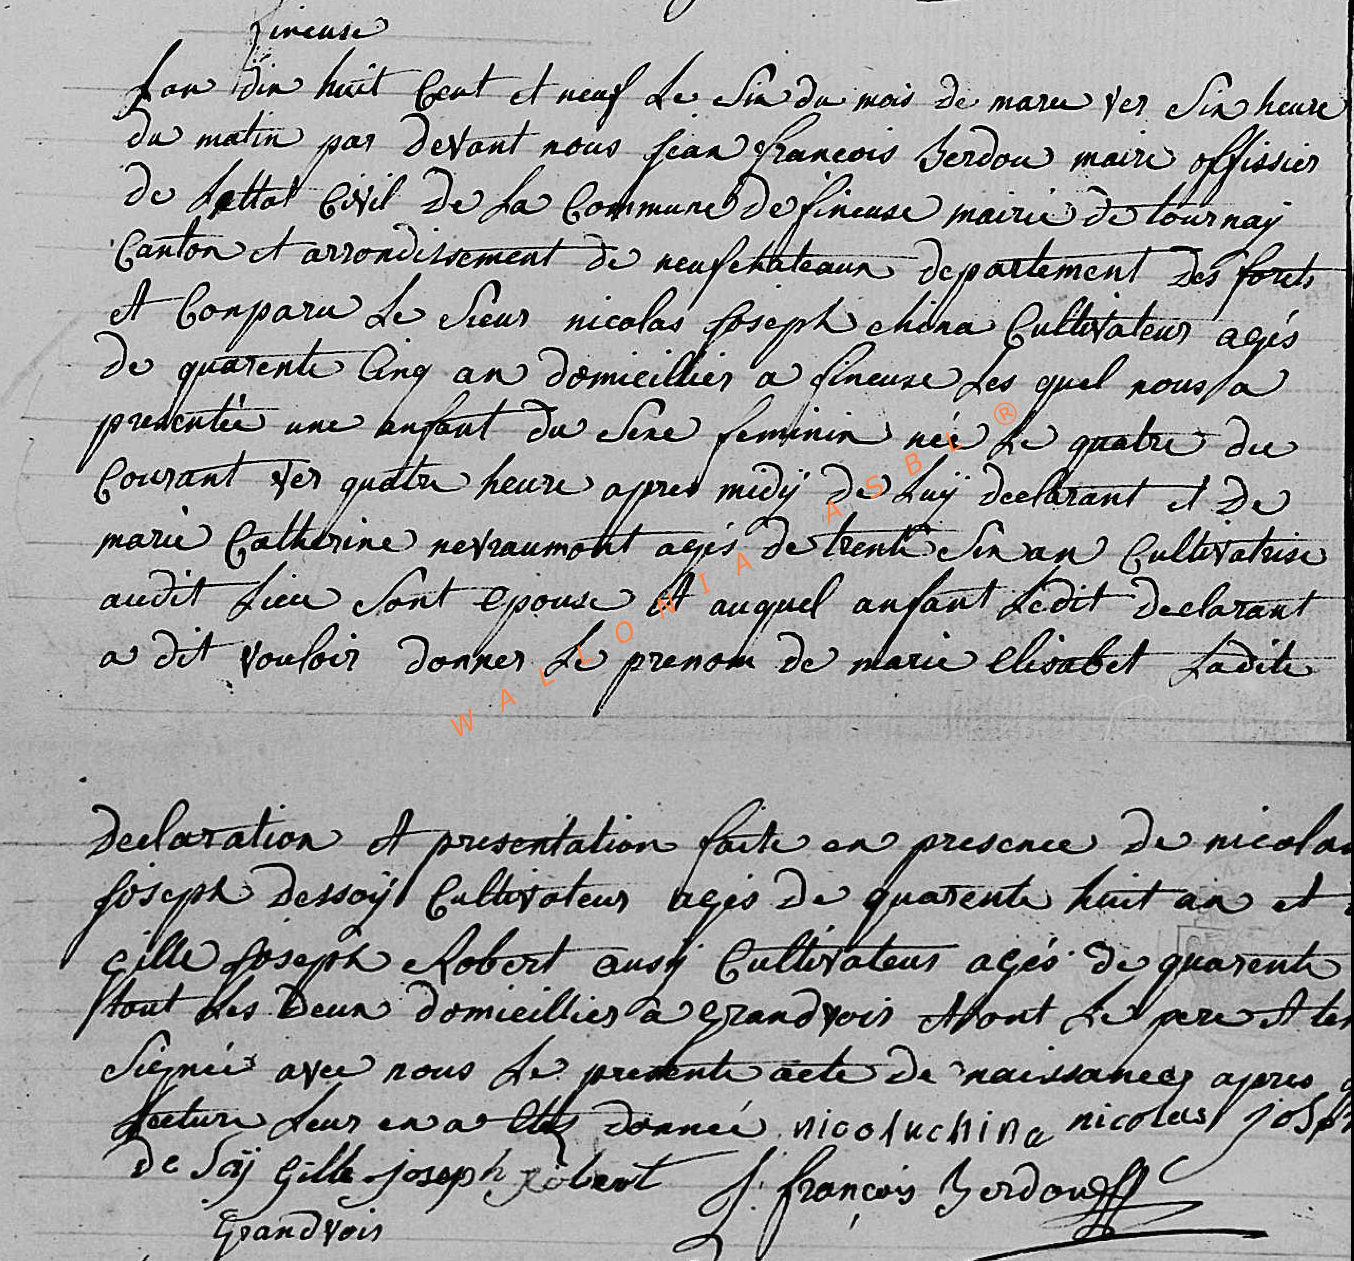 fineuse
Lan dix huit Cent et neuf Le Six du mois de mars ver Six heure
du matin par devant nous jean françois Berdou maire offissier
de Lettat Civil de La Commune de fineuse mairie de tournay
Canton et arrondissement de neufchateaux departement des forets
et Comparu Le Sieur nicolas joseph china Cultivateur agés
de quarente Cinq an domicillier a fineuse Les quel nous a
presentée une anfant du Sexe feminin née Le quatre du
Courant ver quatre heure apres midÿ de Luÿ declarant et de
marie Catherine nevraumont agés de trente Six an Cultivatrise
audit Lieu Sont epouse et auquel anfant Ledit declarant
a dit vouloir donner Le prenom de marie Elisabet Ladite
WALLONIA ASBL ®
declaration et presentation faite en presence de nicolas
joseph dessoÿ Cultivateur agés de quarente huit an et
gille joseph Robert ausÿ Cultivateur agés de quarente
tout Les deux domicillier a grandvoir et ont Le pere et te
Signée avec nous Le presente acte de naissances apres q
Lecture Leur en a donnée nicoluchina nicolas josph
de Soÿ gille joseph Robert J. françois Berdou
grandvoir